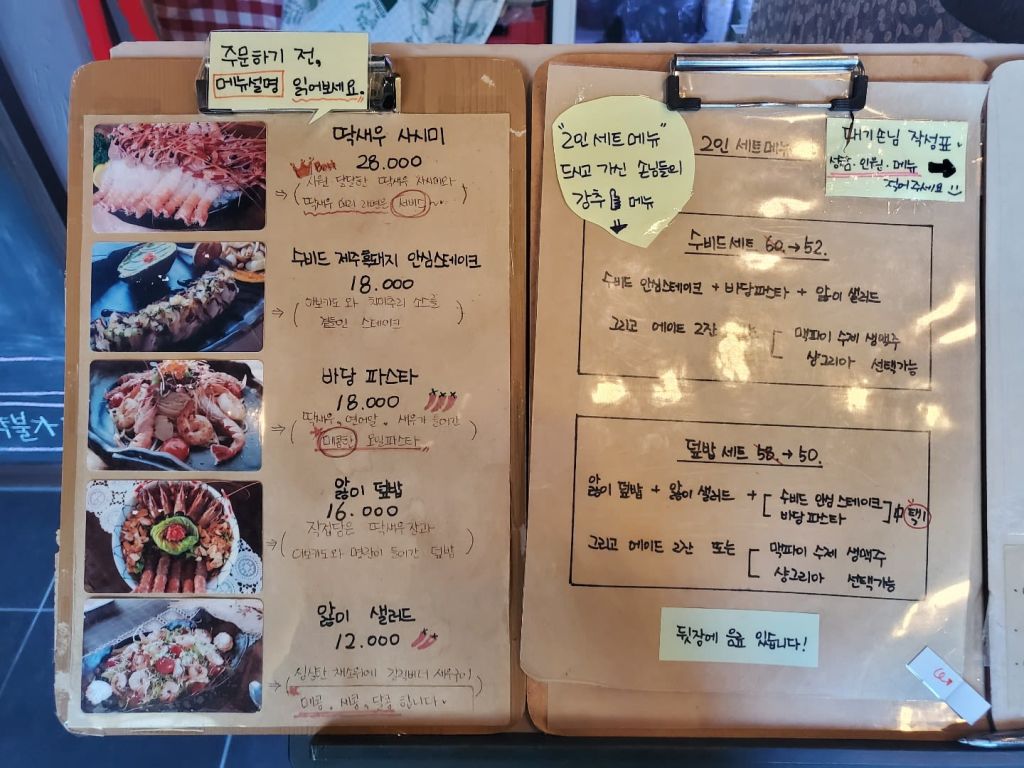 주문하기 전,
메뉴설명 읽어보세요.
딱새우 사시미
Best 28.000
달달한 딱새우 사시미와
딱새우 머리 라면은 서비스
수비드 제주흑돼지 안심스테이크
18.000
아보카도와 치미추리 소스를
곁들인 스테이크
바당 파스타
18.000
딱새우, 연어알, 새우가 들어간
매콤한 오일파스타
앓이 덮밥
16.000
직접담은 딱새우장과
아보카도와 명란이 들어간 덮밥
앓이 샐러드
12.000
싱싱한 채소위에 갈릭버터 새우구이
매콤, 새콤, 달콤 합니다.
"2인 세트 메뉴"
드시고 가신 손님들의
강추 메뉴
2인 세트메뉴
대기손님 작성표.
성함·인원·메뉴
적어주세요
수비드세트 60.→52.
수비드 안심스테이크 + 바당파스타 + 앓이 샐러드
그리고 에이드 2잔
맥파이 수제 생맥주
샹그리아 선택가능
덮밥 세트 58.→50.
앓이 덮밥 + 앓이 샐러드 + 수비드 안심 스테이크
바당파스타 中 택1
그리고 에이드 2잔 또는 맥파이 수제 생맥주
샹그리아 선택가능
뒷장에 음료 있습니다!